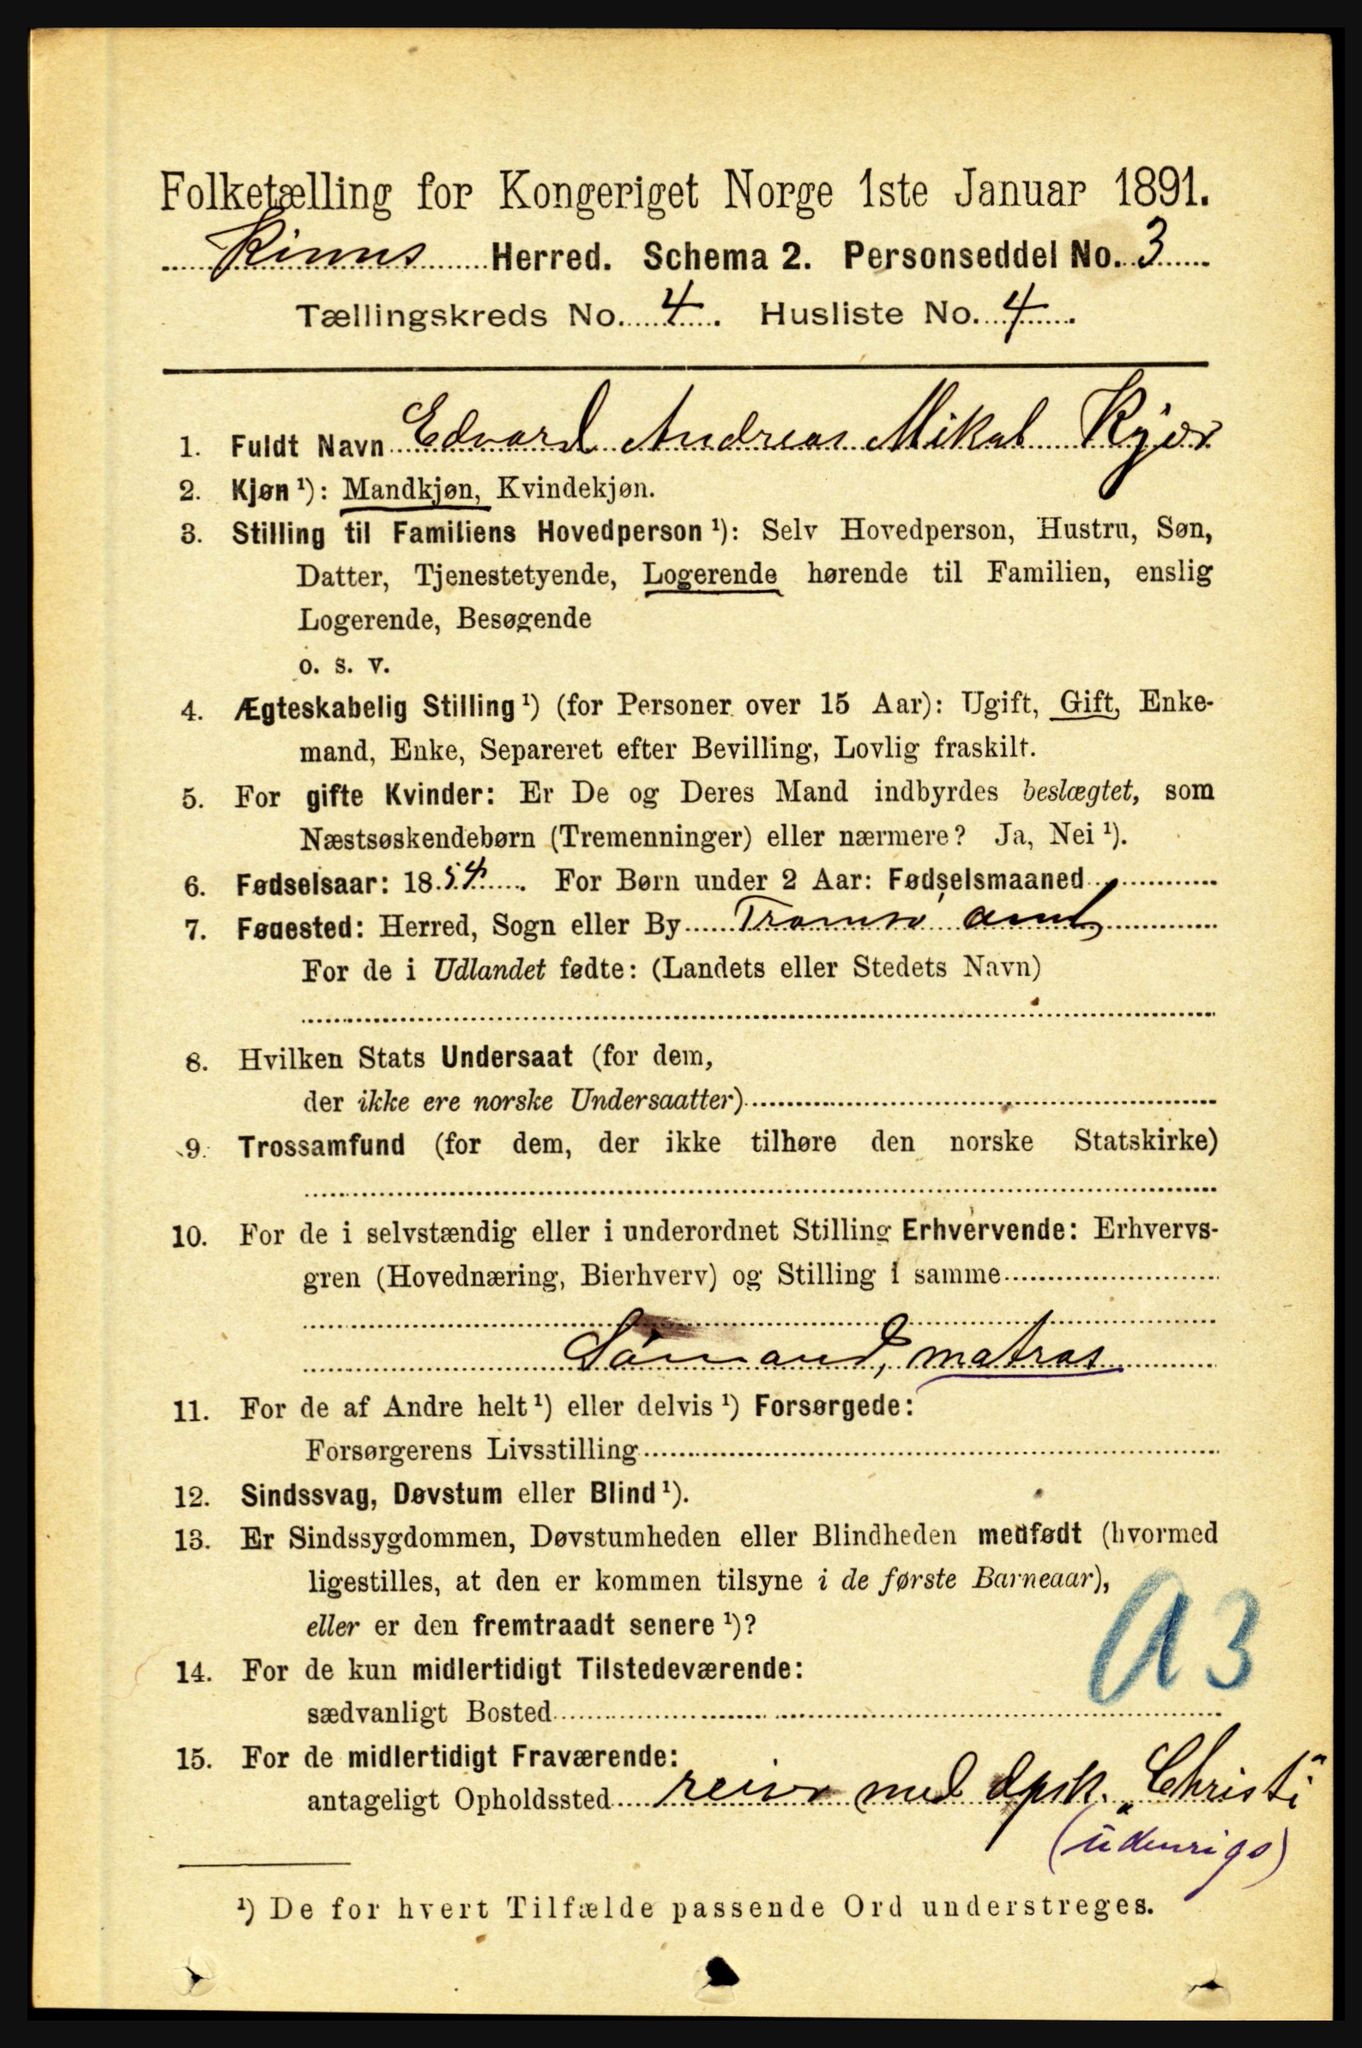 Folketælling for Kongeriget Norge 1ste Januar 1891.
Kinns Herred. Schema 2. Personseddel No. 3
Tællingskreds No. 4. Husliste No. 4.
1. Fuldt Navn Edvard Andreas Mikal
2. Kjøn ¹): Mandkjøn, Kvindekjøn.
3. Stilling til Familiens Hovedperson ¹): Selv Hovedperson, Hustru, Søn,
Datter, Tjenestetyende, Logerende hørende til Familien, enslig
Logerende, Besøgende
o. s. v.
4. Ægteskabelig Stilling ¹) (for Personer over 15 Aar): Ugift, Gift, Enke-
mand, Enke, Separeret efter Bevilling, Lovlig fraskilt.
5. For gifte Kvinder: Er De og Deres Mand indbyrdes beslægtet, som
Næstsøskendebørn (Tremenninger) eller nærmere? Ja, Nei ¹).
6. Fødselsaar: 1854. For Børn under 2 Aar: Fødselsmaaned
7. Fødested: Herred, Sogn eller By Tromsø amt
For de i Udlandet fødte: (Landets eller Stedets Navn)
8. Hvilken Stats Undersaat (for dem,
der ikke ere norske Undersaatter)
9. Trossamfund (for dem, der ikke tilhøre den norske Statskirke)
10. For de i selvstændig eller i underordnet Stilling Erhvervende: Erhvervs-
gren (Hovednæring, Bierhverv) og Stilling i samme
Sømand, matros
11. For de af Andre helt ¹) eller delvis ¹) Forsørgede:
Forsørgerens Livsstilling
12. Sindssvag, Døvstum eller Blind ¹).
13. Er Sindssygdommen, Døvstumheden eller Blindheden medfødt (hvormed
ligestilles, at den er kommen tilsyne i de første Barneaar),
eller er den fremtraadt senere ¹)?
A3
14. For de kun midlertidigt Tilstedeværende:
sædvanligt Bosted
15. For de midlertidigt Fraværende:
antageligt Opholdssted reiser med dpsk. "Christi"
(udenrigs)
¹) De for hvert Tilfælde passende Ord understreges.